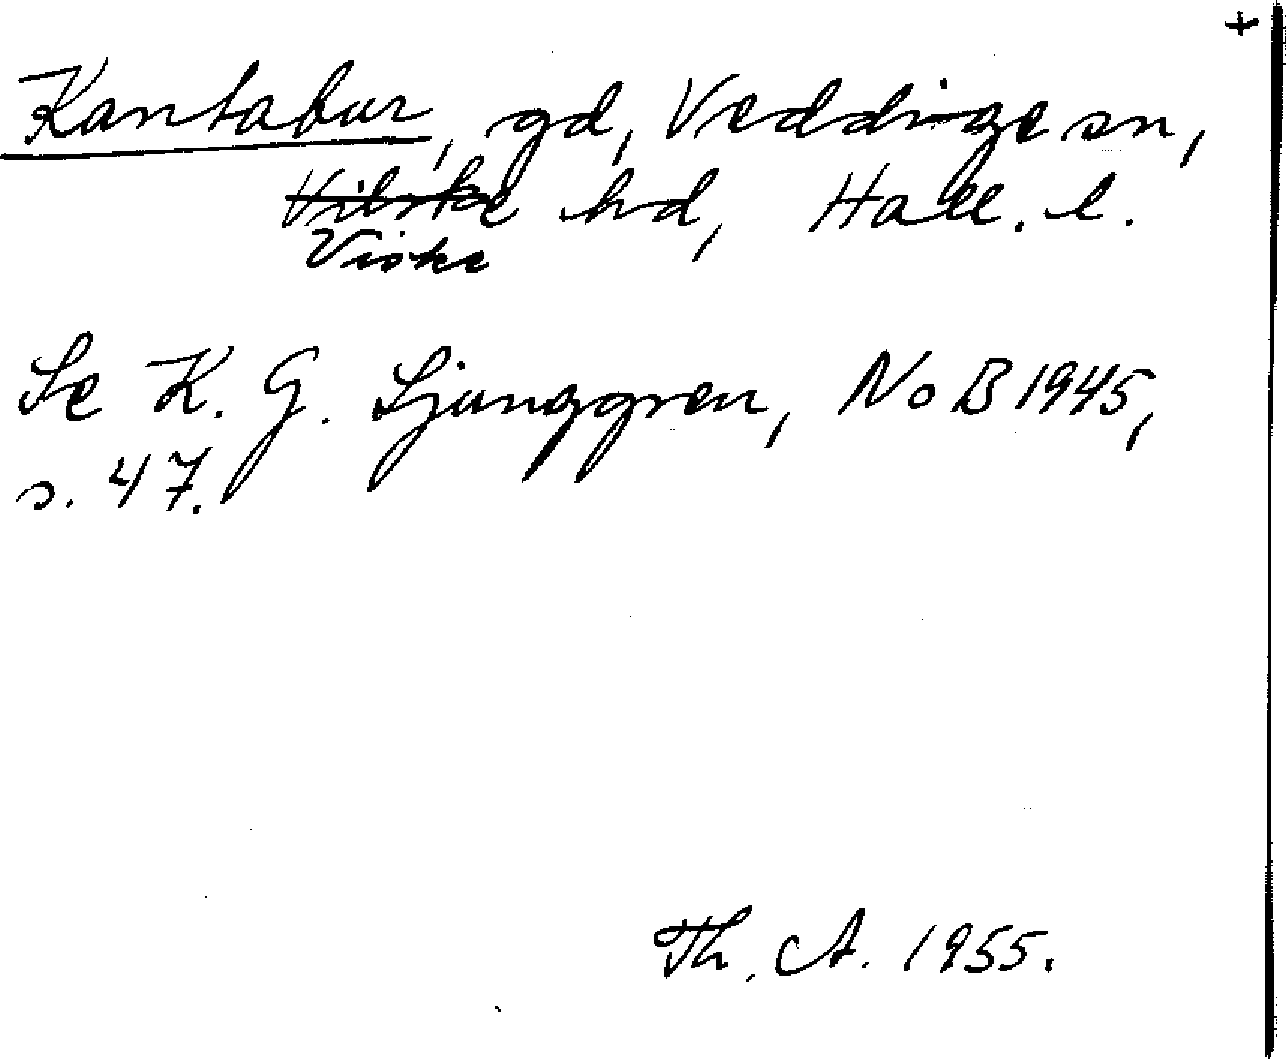 +
Kantabur, gd, Veddinge sn,
Vilske hd, Hall. l.
Viske
Se K. G. Ljunggren, NoB 1945,
s. 47.
Th. A. 1955.